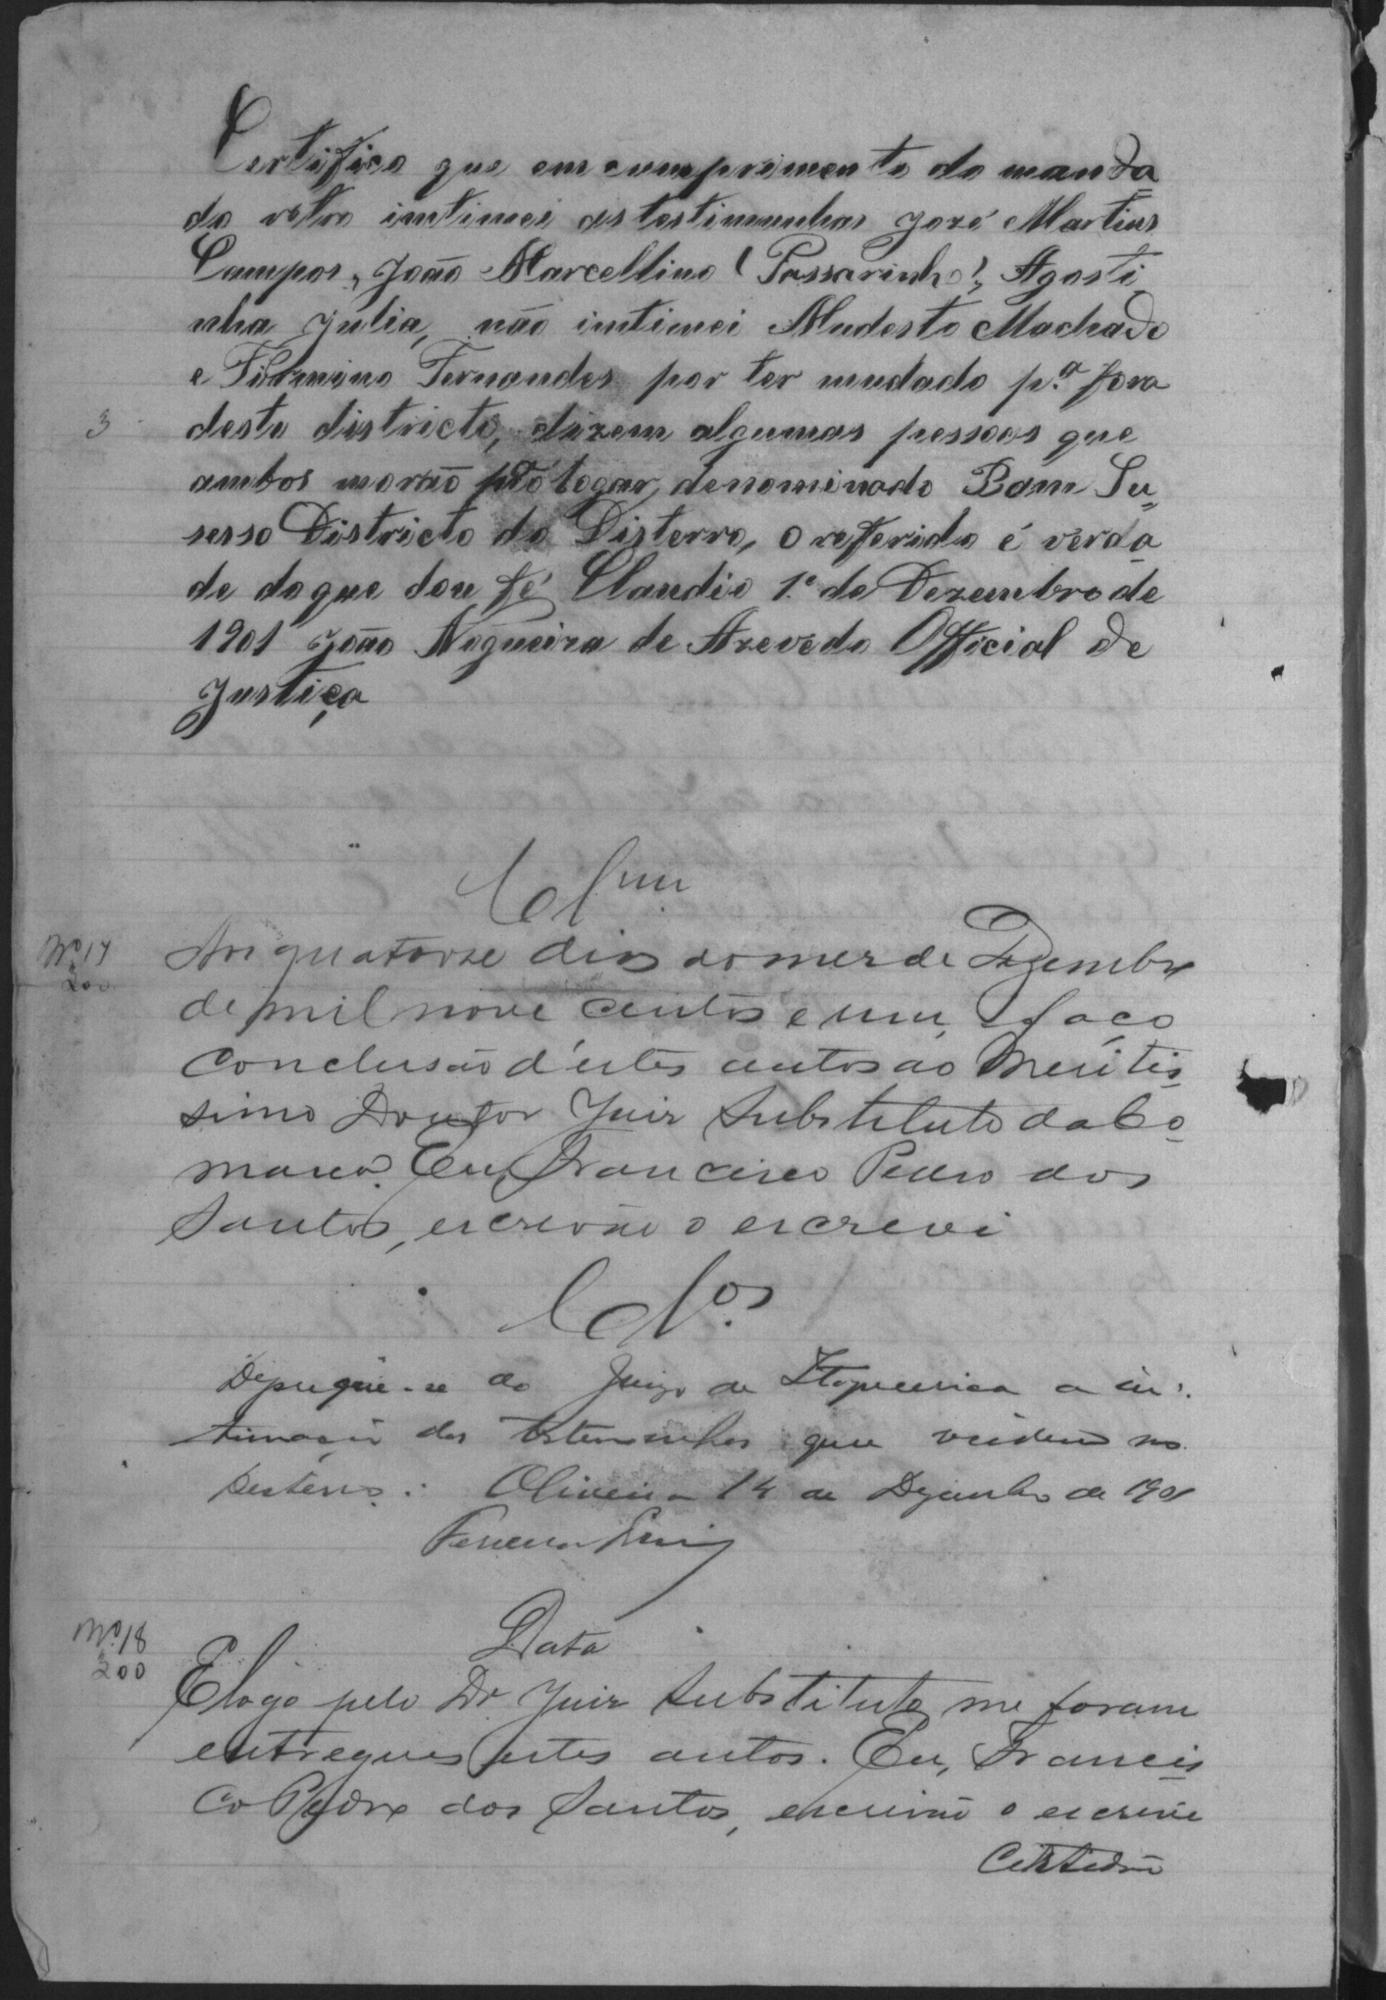 Certifico que em cumprimento do manda
do retro intimei as testimunhas José Martins
Campos, João Marcellino (Passarinho), Agosti
nha Julia, não intimei Mudesto Machado
e Firmino Fernandes por ter mudado p.ª fora
3
deste districto, dizem algumas pessoas que
ambos morão logar, denominado Bom Su
sesso Districto do Disterro, o referido é verda
de do que dou fé Claudio 1.º de Dezembro de
1901 João Nogueira de Azevedo Official de
Justiça
Clsm
Nº 17
200
Aos quatorze dias do mez de Dezembro
de mil nove centos e um, faço
conclusão d'estes autos ao Meritis
simo Doutor Juiz Substituto da Co
marca. Eu, Francisco Pedro dos
Santos, escrivão o escrevi
Clos.
Depreque-se do Juizo de Itapecerica a in
timação das testemunhas que residem no
Desterro. Oliveira 14 de Dezembro de 1901
Data
Nº 18
200
E logo pelo Dr. Juiz Substituto me foram
entregues estes autos. Eu, Francis
co Pedro dos Santos, escrivão o escrevi
Certidão